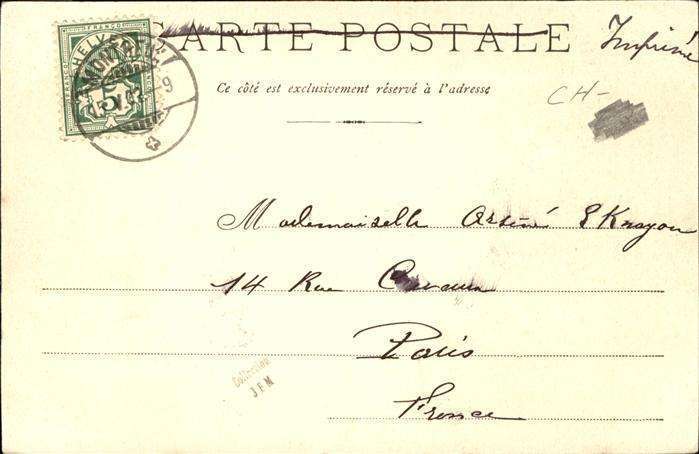 CARTE POSTALE
Imprimé
Ce côté est exclusivement réservé à l'adresse
CH-
FRANCO
HELVETIA
MONTREUX
5
Mademoiselle Arsiné
14 Rue
Paris
France
Collection
JFM